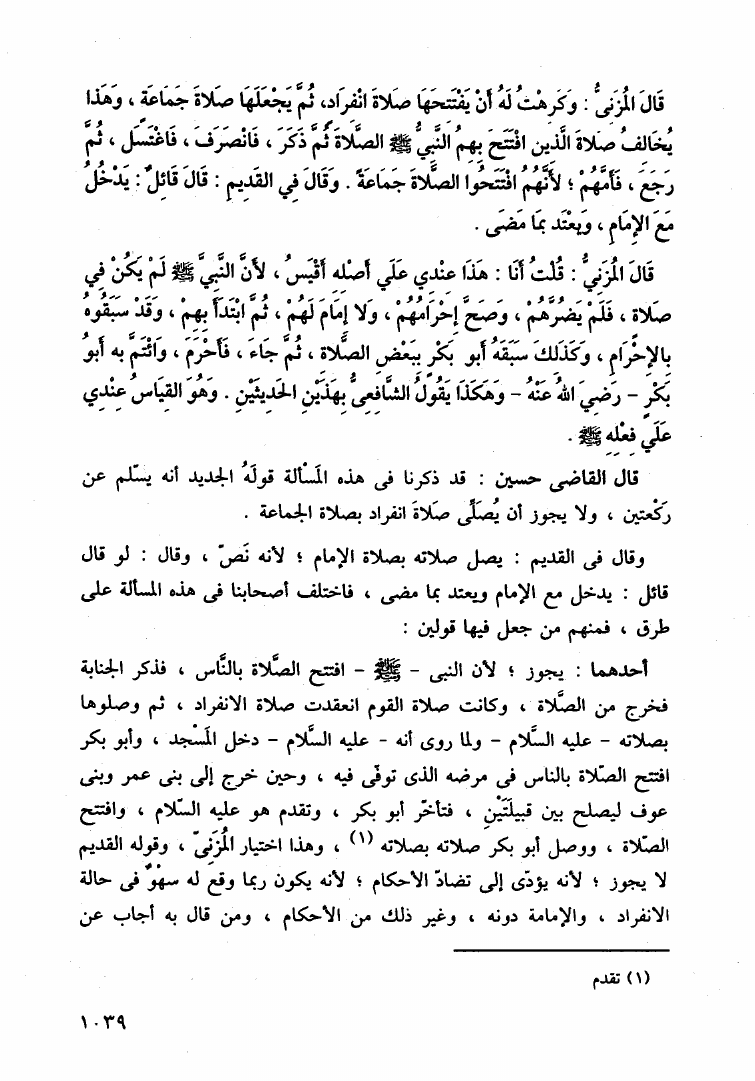 قَالَ الْمُزَنِيُّ : وَكَرِهْتُ لَهُ أَنْ يَفْتَتِحَهَا صَلَاةَ انْفِرَادٍ، ثُمَّ يَجْعَلَهَا صَلَاةَ جَمَاعَةٍ ، وَهَذَا
يُخَالِفُ صَلَاةَ الَّذِينَ افْتَتَحَ بِهِمُ النَّبِيُّ ﷺ الصَّلَاةَ ثُمَّ ذَكَرَ ، فَانْصَرَفَ ، فَاغْتَسَلَ ، ثُمَّ
رَجَعَ ، فَأَمَّهُمْ ؛ لأَنَّهُمُ افْتَتَحُوا الصَّلَاةَ جَمَاعَةً . وَقَالَ فِي القَدِيمِ : قَالَ قَائِلٌ : يَدْخُلُ
مَعَ الإِمَامِ ، وَيَعْتَد بِمَا مَضَى .
قَالَ الْمُزَنِيُّ : قُلْتُ أَنَا : هَذَا عِنْدِي عَلَي أَصْلِهِ أَقْيَسُ ، لأَنَّ النَّبِيَّ ﷺ لَمْ يَكُنْ فِي
صَلَاة ، فَلَمْ يَضُرَّهُمْ ، وَصَحَّ إِحْرَامُهُمْ ، وَلَا إِمَامَ لَهُمْ ، ثُمَّ ابْتَدَأَ بِهِمْ ، وَقَدْ سَبَقُوهُ
بِالإِحْرَامِ ، وَكَذَلِكَ سَبَقَهُ أَبو بَكْرٍ بِبَعْضِ الصَّلَاة ، ثُمَّ جَاءَ ، فَأَحْرَمَ ، وَائْتَمَّ بِه أَبُو
بَكْرٍ - رَضِيَ اللهُ عَنْهُ - وَهَكَذَا يَقُولُ الشَّافِعِيُّ بِهَذَيْنِ الحَدِيثَيْنِ . وَهُوَ القِيَاسُ عِنْدِي
عَلَي فِعْلِهِ ﷺ .
قال القاضى حسين : قد ذكرنا فى هذه المَسْألة قولَهُ الجديد أنه يسّلم عن
رَكْعتين ، ولا يجوز أن يُصَلِّى صَلَاةَ انفراد بصلاة الجماعة .
وقال فى القديم : يصل صلاته بصلاة الإمام ؛ لأنه نَصّ ، وقال : لو قال
قائل : يدخل مع الإمام ويعتد بما مضى ، فاختلف أصحابنا فى هذه المسألة على
طرق ، فمنهم من جعل فيها قولين :
أحدهما : يجوز ؛ لأن النبى - ﷺ - افتتح الصَّلاة بالنَّاس ، فذكر الجنابة
فخرج من الصَّلاة ، وكانت صلاة القوم انعقدت صلاة الانفراد ، ثم وصلوها
بصلاته - عليه السَّلام - ولما روى أنه - عليه السَّلام - دخل المَسْجد ، وأبو بكر
افتتح الصّلاة بالناس فى مرضه الذى توفّى فيه ، وحين خرج إلى بنى عمر وبنى
عوف ليصلح بين قبيلَتَيْنِ ، فتأخّر أبو بكر ، وتقدم هو عليه السلام ، وافتتح
الصّلاة ، ووصل أبو بكر صلاته بصلاته (١) ، وهذا اختيار المُزَنىّ ، وقوله القديم
لا يجوز ؛ لأنه يؤدّى إلى تضادّ الأحكام ؛ لأنه يكون ربما وقع له سهوٌ فى حالة
الانفراد ، والإمامة دونه ، وغير ذلك من الأحكام ، ومن قال به أجاب عن
(١) تقدم
١٠٣٩